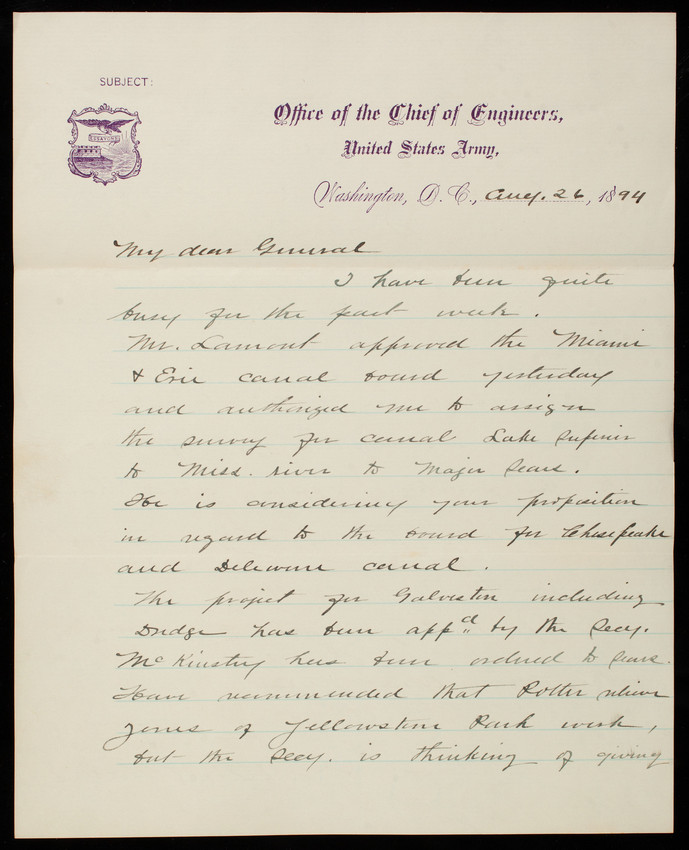 SUBJECT:
ESSAYONS
Office of the Chief of Engineers,
United States Army,
Washington, D. C., Aug. 26, 1894
My dear General
I have been quite
busy for the past week.
Mr. Lamont approved the Miami
& Erie canal board yesterday
and authorized me to assign
the survey for canal Lake Superior
to Miss. river to Major Sears.
He is considering your proposition
in regard to the board for Chesapeake
and Delaware canal.
The project for Galveston including
Dredge has been appd. by the Secy.
McKinstry has been ordered to Sears.
Have recommended that Potter relieve
Jones of Yellowstone Park work,
but the Secy. is thinking of giving